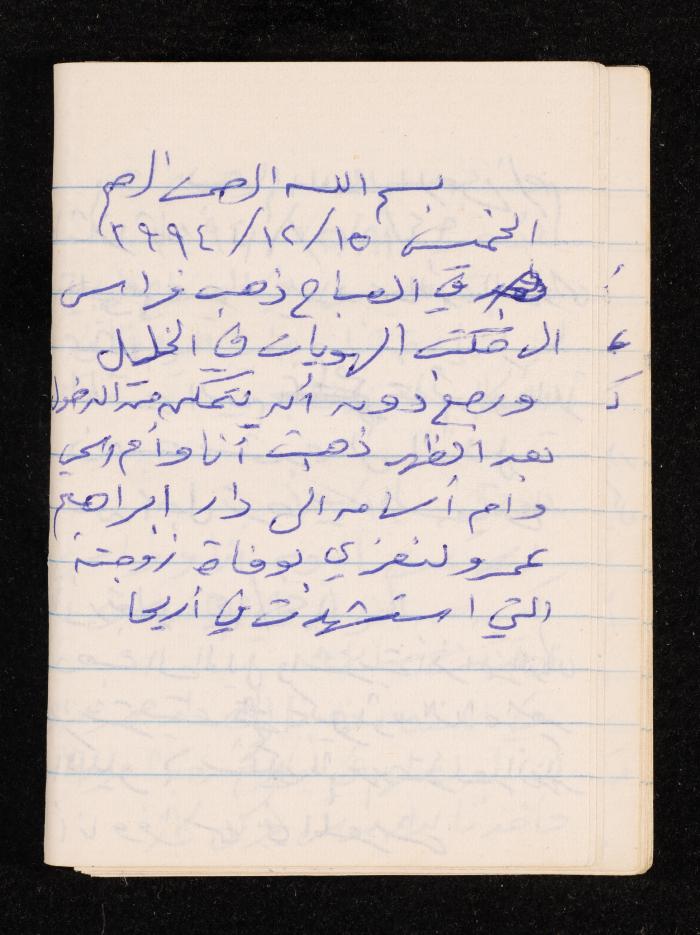 بسم الله الرحمن الرحيم
الخميس ١٥/١٢/١٩٩٤
في الصباح ذهب فراس
الى مكتب الهويات في الخليل
ورجع دون أن يتمكن من الدخول
بعد الظهر ذهبت أنا وأم
وأم أسامه الى دار ابراهيم
عمرو لنعزي بوفاة زوجته
التي استشهدت في أريحا